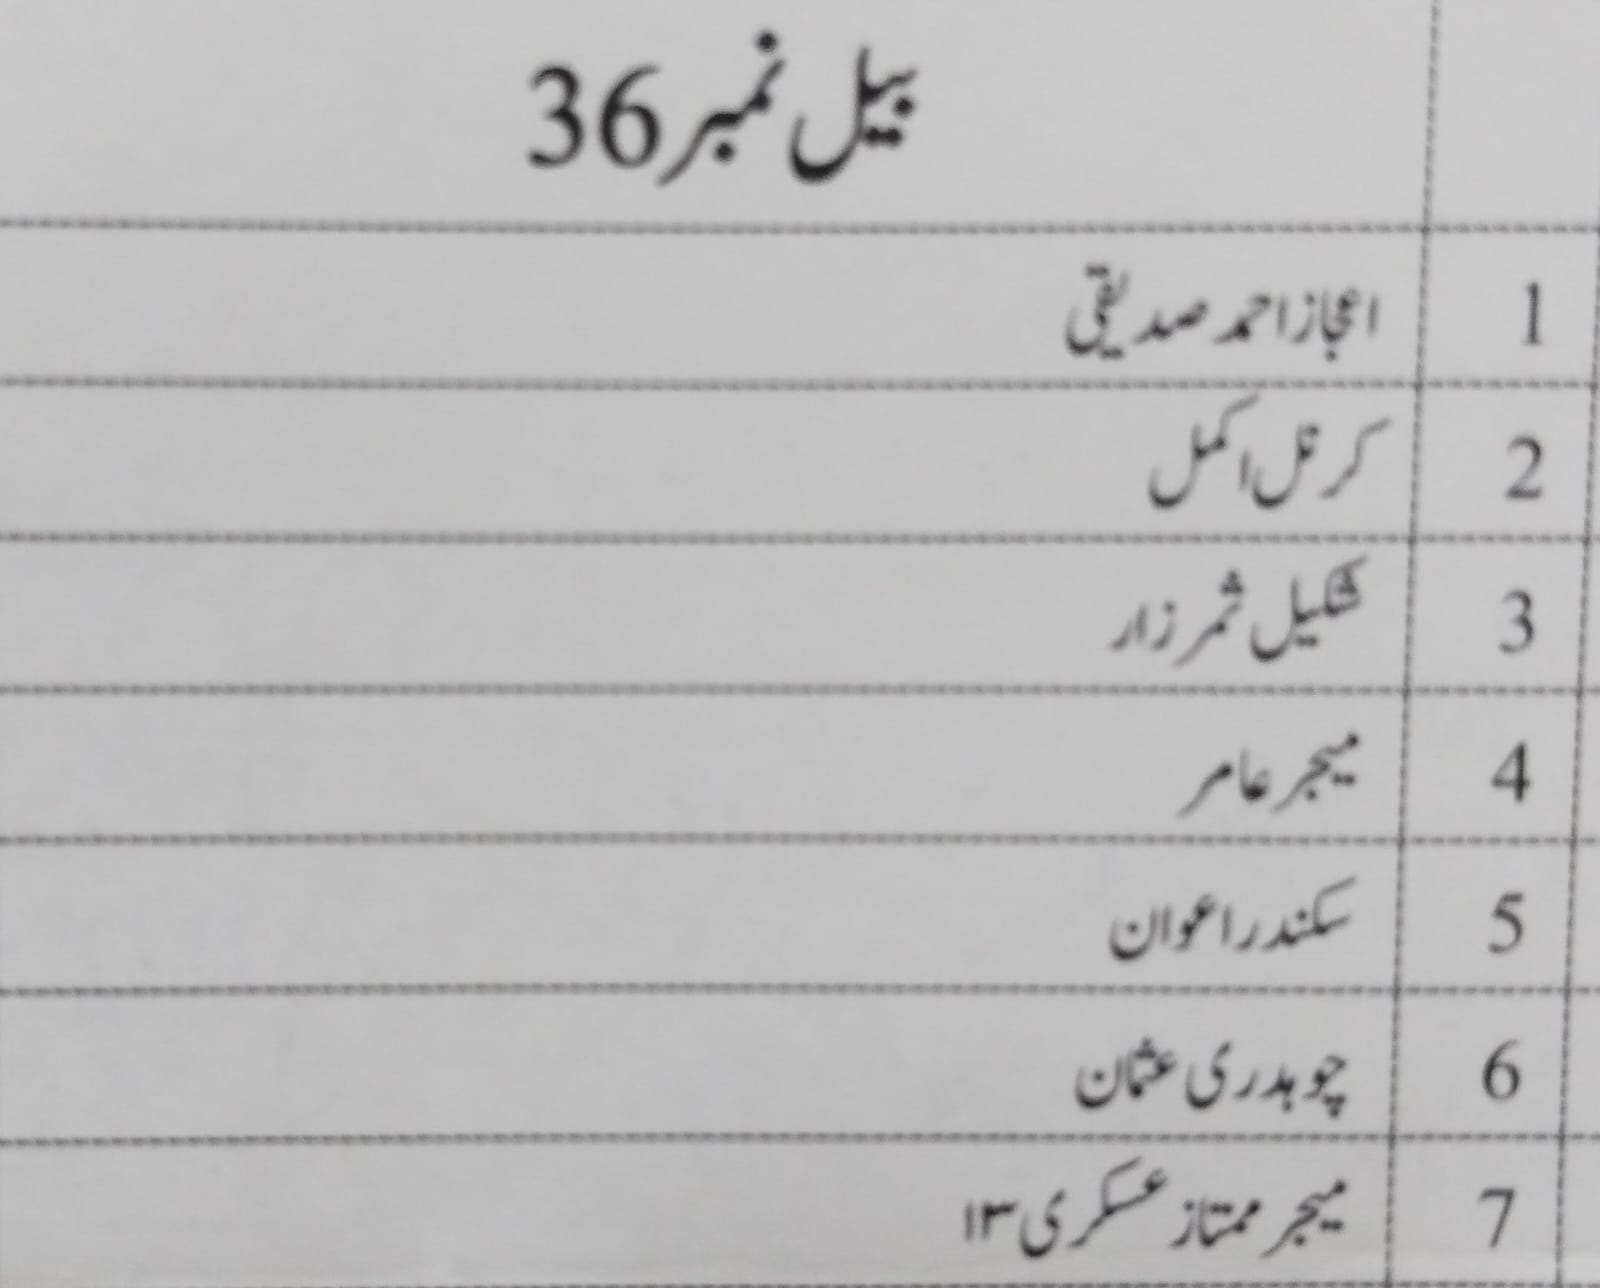 بیل نمبر 36
1 اعجاز احمد صدیقی
2 کرنل اکمل
3 شکیل ثمر زار
4 میجر عامر
5 سکندر اعوان
6 چوہدری عثمان
7 میجر ممتاز عسکری ۱۳